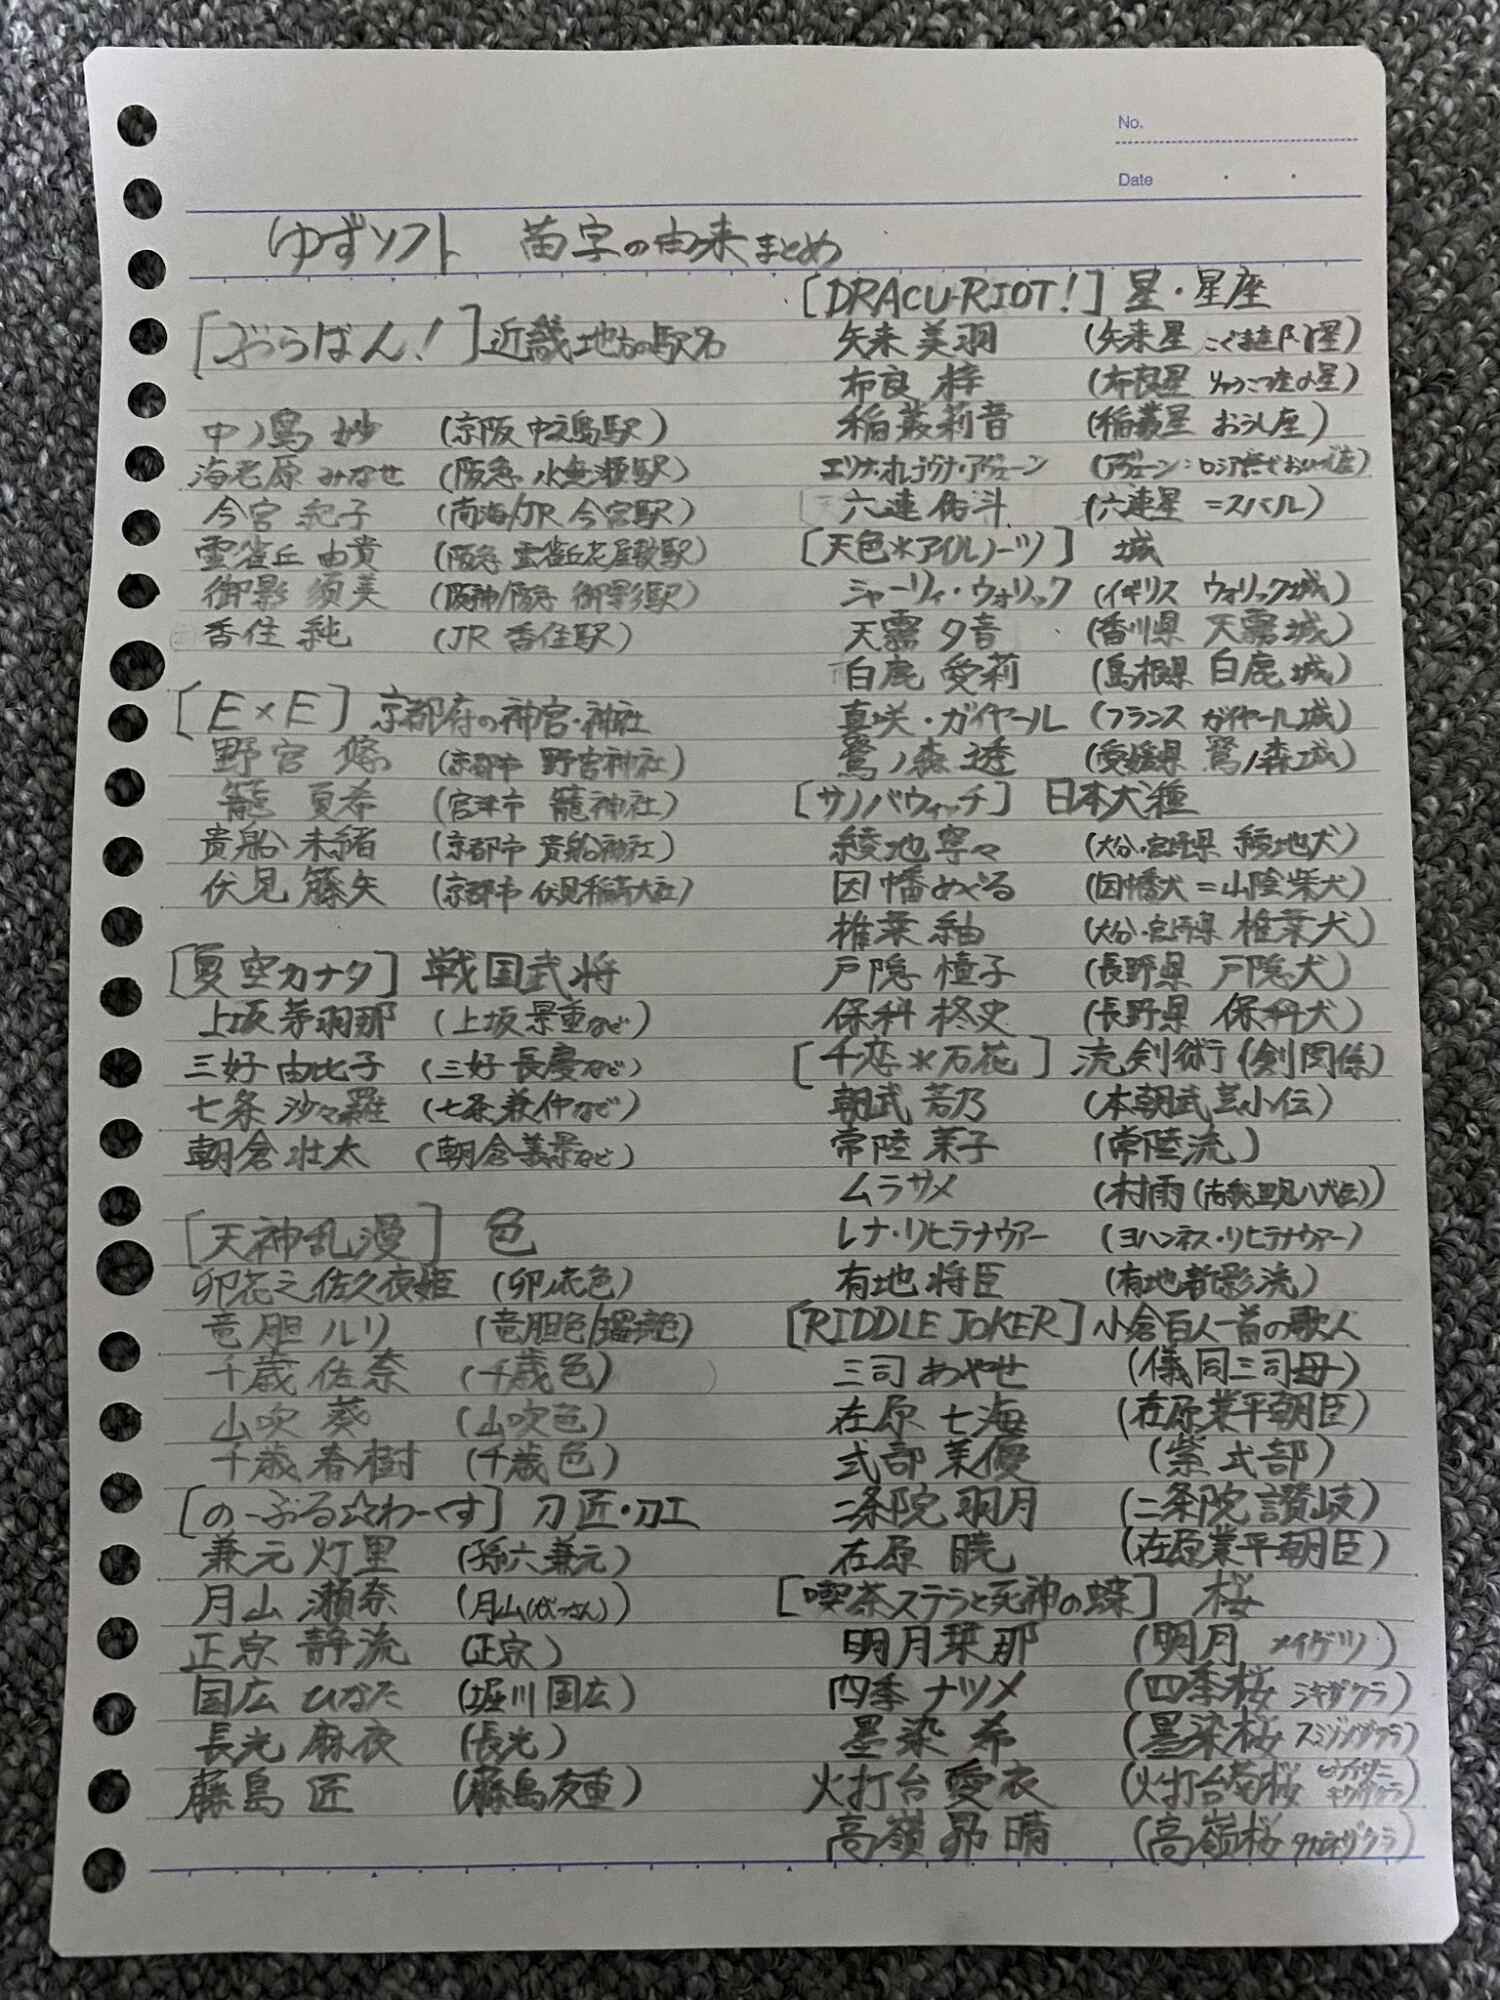 No.
Date
ゆずソフト 苗字の由来まとめ
[ぶらばん!] 近畿地方の駅名
中ノ島 妙 (京阪 中之島駅)
海老原 みなせ (阪急 水無瀬駅)
今宮 紀子 (南海/JR 今宮駅)
雲雀丘 由貴 (阪急 雲雀丘花屋敷駅)
御影 須美 (阪神/阪急 御影駅)
香住 純 (JR 香住駅)
[E×E] 京都府の神宮・神社
野宮 悠 (京都市 野宮神社)
籠 夏希 (宮津市 籠神社)
貴船 未緒 (京都市 貴船神社)
伏見 籐矢 (京都市 伏見稲荷大社)
[夏空カナタ] 戦国武将
上坂 茅羽那 (上坂 景重など)
三好 由比子 (三好 長慶など)
七条 沙々羅 (七条 兼仲など)
朝倉 壮太 (朝倉 義景など)
[天神乱漫] 色
卯花之佐久夜姫 (卯花色)
竜胆 ルリ (竜胆色/瑠璃色)
千歳 佐奈 (千歳色)
山吹 葵 (山吹色)
千歳 春樹 (千歳色)
[のーぶる☆わーくす] 刀匠・刀工
兼元 灯里 (孫六兼元)
月山 瀬奈 (月山(がっさん))
正宗 静流 (正宗)
国広 ひなた (堀川 国広)
長光 麻夜 (長光)
藤島 匠 (藤島友重)
[DRACU-RIOT!] 星・星座
矢来 美羽 (矢来星 こぐま座β γ星)
布良 梓 (布良星 りゅうこつ座α星)
稲叢莉音 (稲叢星 おうし座)
エリナ・オレゴヴナ・アヴェーン (アヴェーン:ロシア語でおひつじ座)
六連 佑斗 (六連星 =スバル)
[天色*アイルノーツ] 城
シャーリィ・ウォリック (イギリス ウォリック城)
天霧 夕音 (香川県 天霧城)
白鹿 愛莉 (島根県 白鹿城)
真咲・ガイヤール (フランス ガイヤール城)
鷺ノ森 透 (愛媛県 鷺ノ森城)
[サノバウィッチ] 日本犬種
綾地 寧々 (大分・宮崎県 綾地犬)
因幡めぐる (因幡犬=山陰柴犬)
椎葉 紬 (大分・宮崎県 椎葉犬)
戸隠 憧子 (長野県 戸隠犬)
保科 柊史 (長野県 保科犬)
[千恋*万花] 流剣術(剣関係)
朝武 芳乃 (本朝武芸小伝)
常陸 茉子 (常陸流)
ムラサメ (村雨(南総里見八犬伝))
レナ・リヒテナウアー (ヨハンネス・リヒテナウアー)
有地 将臣 (有地新影流)
[RIDDLE JOKER] 小倉百人一首の歌人
三司 あやせ (儀同三司母)
在原 七海 (在原業平朝臣)
式部 茉優 (紫 式部)
二条院 羽月 (二条院 讃岐)
在原 暁 (在原業平朝臣)
[喫茶ステラと死神の蝶] 桜
明月栞那 (明月 メイゲツ)
四季 ナツメ (四季桜 シキザクラ)
墨染 希 (墨染桜 スミゾメザクラ)
火打台 愛衣 (火打台菊桜 ヒウチダニキクザクラ)
高嶺 昴晴 (高嶺桜 タカネザクラ)